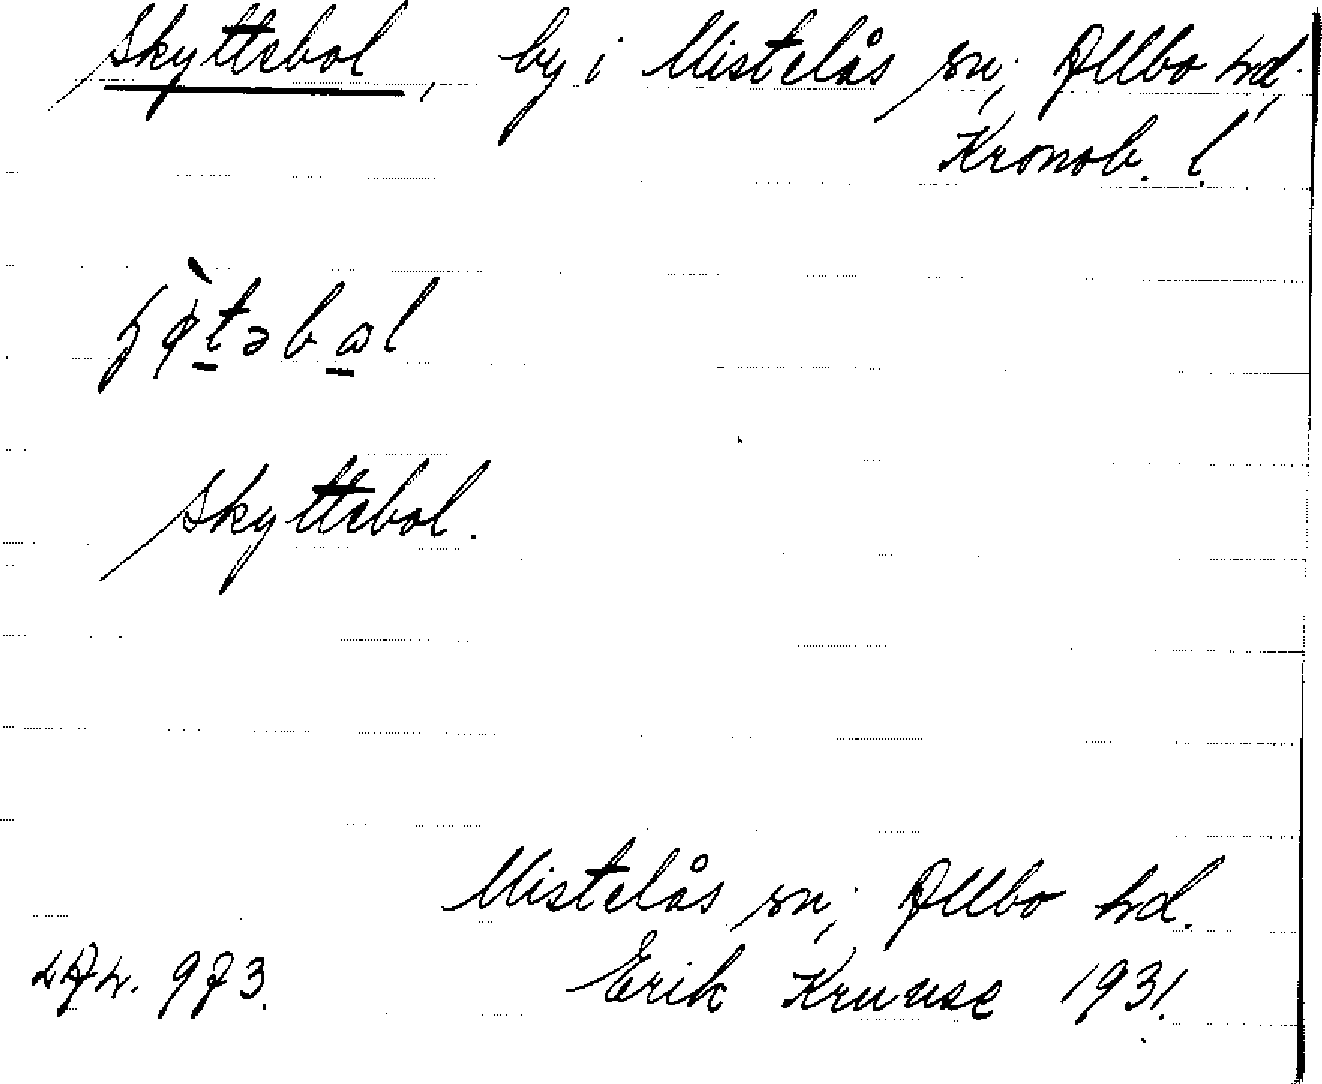 Skyttebol, by i Mistelås sn; Allbo hd.
Kronob. l.
Skyttebol.
Mistelås sn; Allbo hd.
973. Erik Kruuse 1931.